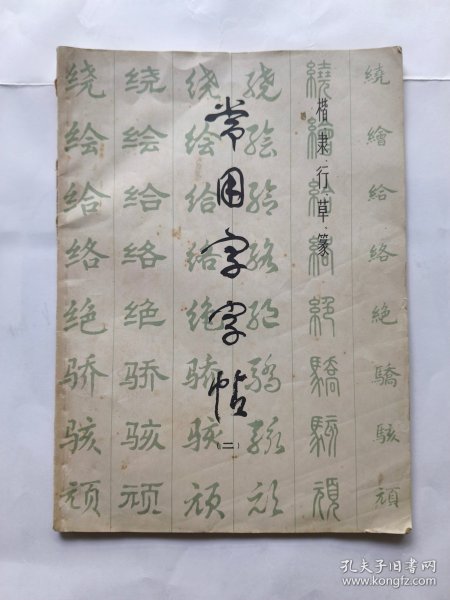 楷·隶·行·草·篆
常用字字帖
(二)
繞繪給絡絶驕駭頑
繞繪給絡絕驕駭頑
绕绘给络绝骄骇顽
绕绘给络绝骄骇顽
绕绘给络绝骄骇顽
绕绘给络绝骄骇顽
孔夫子旧书网
www.kongfz.com